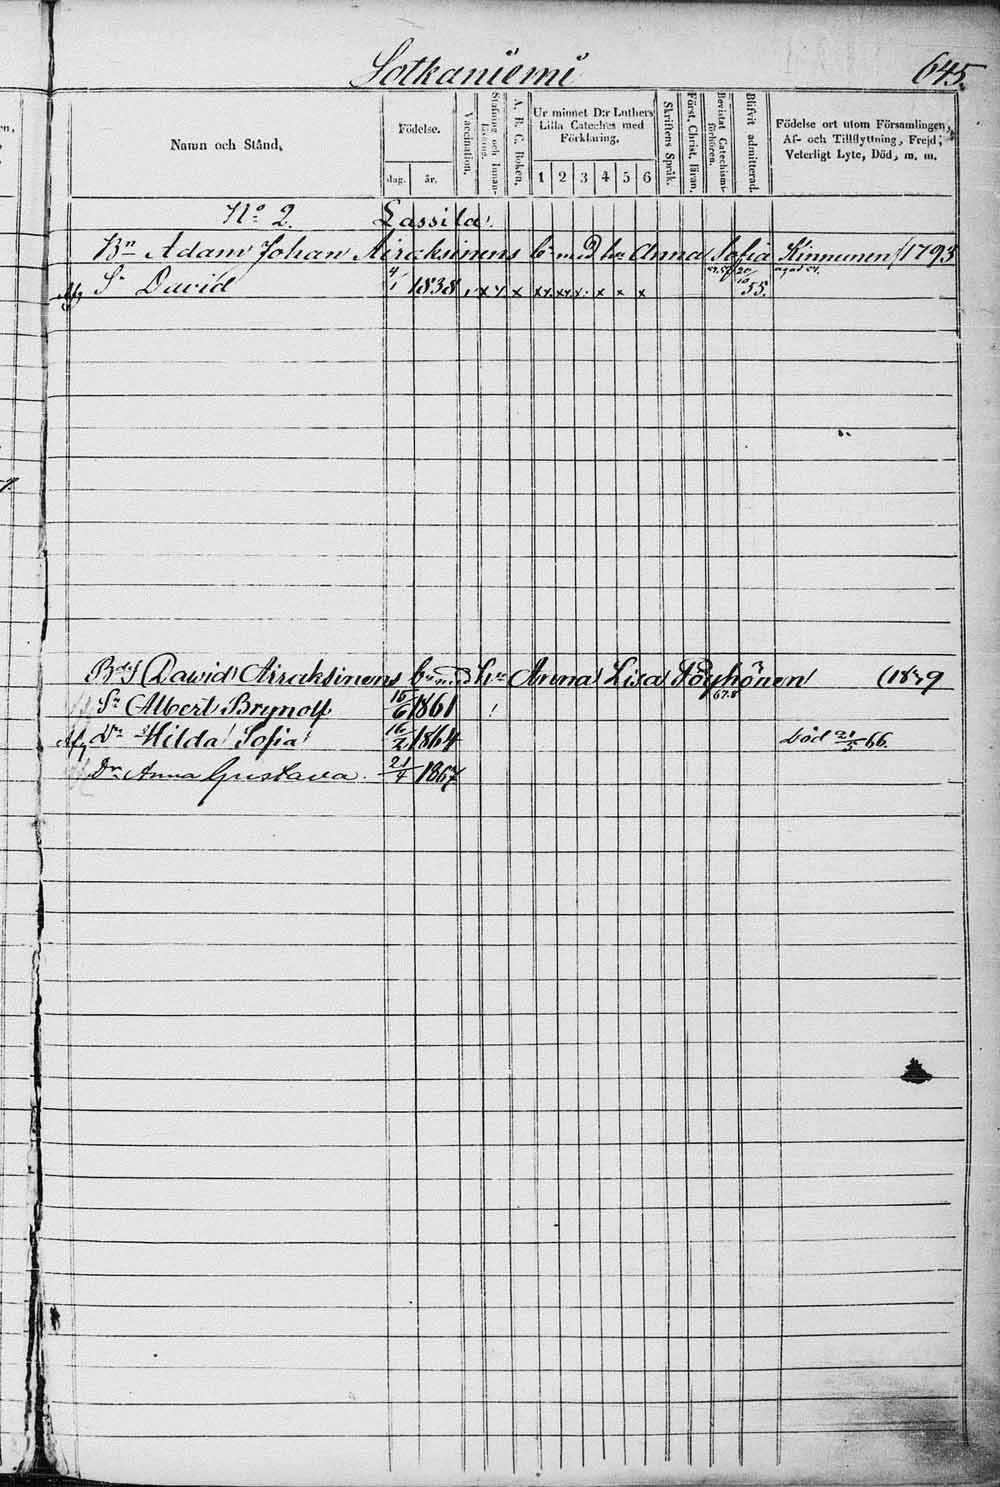 Sotkaniemi 645.
Namn och Stånd,
Födelse.
dag. år.
Vaccination.
Stafning och Innan-läsning.
A. B. C. Boken.
Ur minnet D:r Luthers Lilla Cateches med Förklaring.
1 2 3 4 5 6
Skriftens Språk.
Först. Christ. läran.
Bevistat Catechismi-förhören.
Blifvit admitterad.
Födelse ort utom Församlingen, Af- och Tillflyttning, Frejd, Veterligt Lyte, Död, m. m.
No 2. Lassila.
Bn Adam Johan Airaksinens bn med hu Anna Sofia Kinnunen /1793
Afg Sn David 4/1 1838 , x y x xy. xy. x. x x x 20/10 55.
Bdes David Airaksinens bn med hu Anna Lisa Pöyhönen (1839
67.8
Sn Albert Brynolf 15/6 1861
Afg Dr Hilda Sofia 16/2 1864 död 21/5 66.
Dr Anna Gustava 21/4 1867